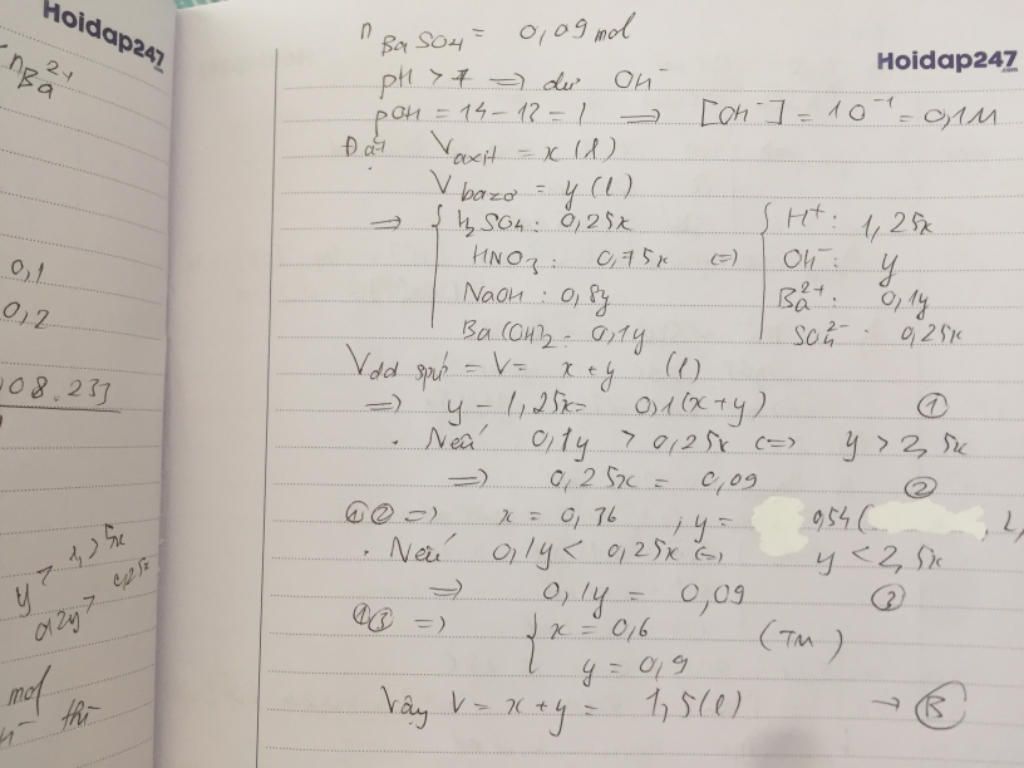 Hoidap247.com
n Ba²⁺
0,1
0,2
08.233
y > 1,25x
0,2y > 0,25x
mol
thì
n BaSO4 = 0,09 mol
Hoidap247.com
pH > 7 => dư OH⁻
pOH = 14 - 13 = 1 => [OH⁻] = 10⁻¹ = 0,1M
Đặt V axit = x (l)
V bazo = y (l)
=> { H2SO4: 0,25x { H⁺: 1,25x
HNO3: 0,75x (=) OH⁻: y
NaOH: 0,8y Ba²⁺: 0,1y
Ba(OH)2: 0,1y SO4²⁻: 0,25x
Vdd spứ = V = x + y (l)
=> y - 1,25x = 0,1(x+y) ①
. Nếu 0,1y > 0,25x (=) y > 2,5x
=> 0,25x = 0,09 ②
①② => x = 0,36 ; y = 0,54 (
. Nếu 0,1y < 0,25x (=) y < 2,5x
=> 0,1y = 0,09 ③
①③ => { x = 0,6 (TM)
y = 0,9
Vậy V = x + y = 1,5(l) → B